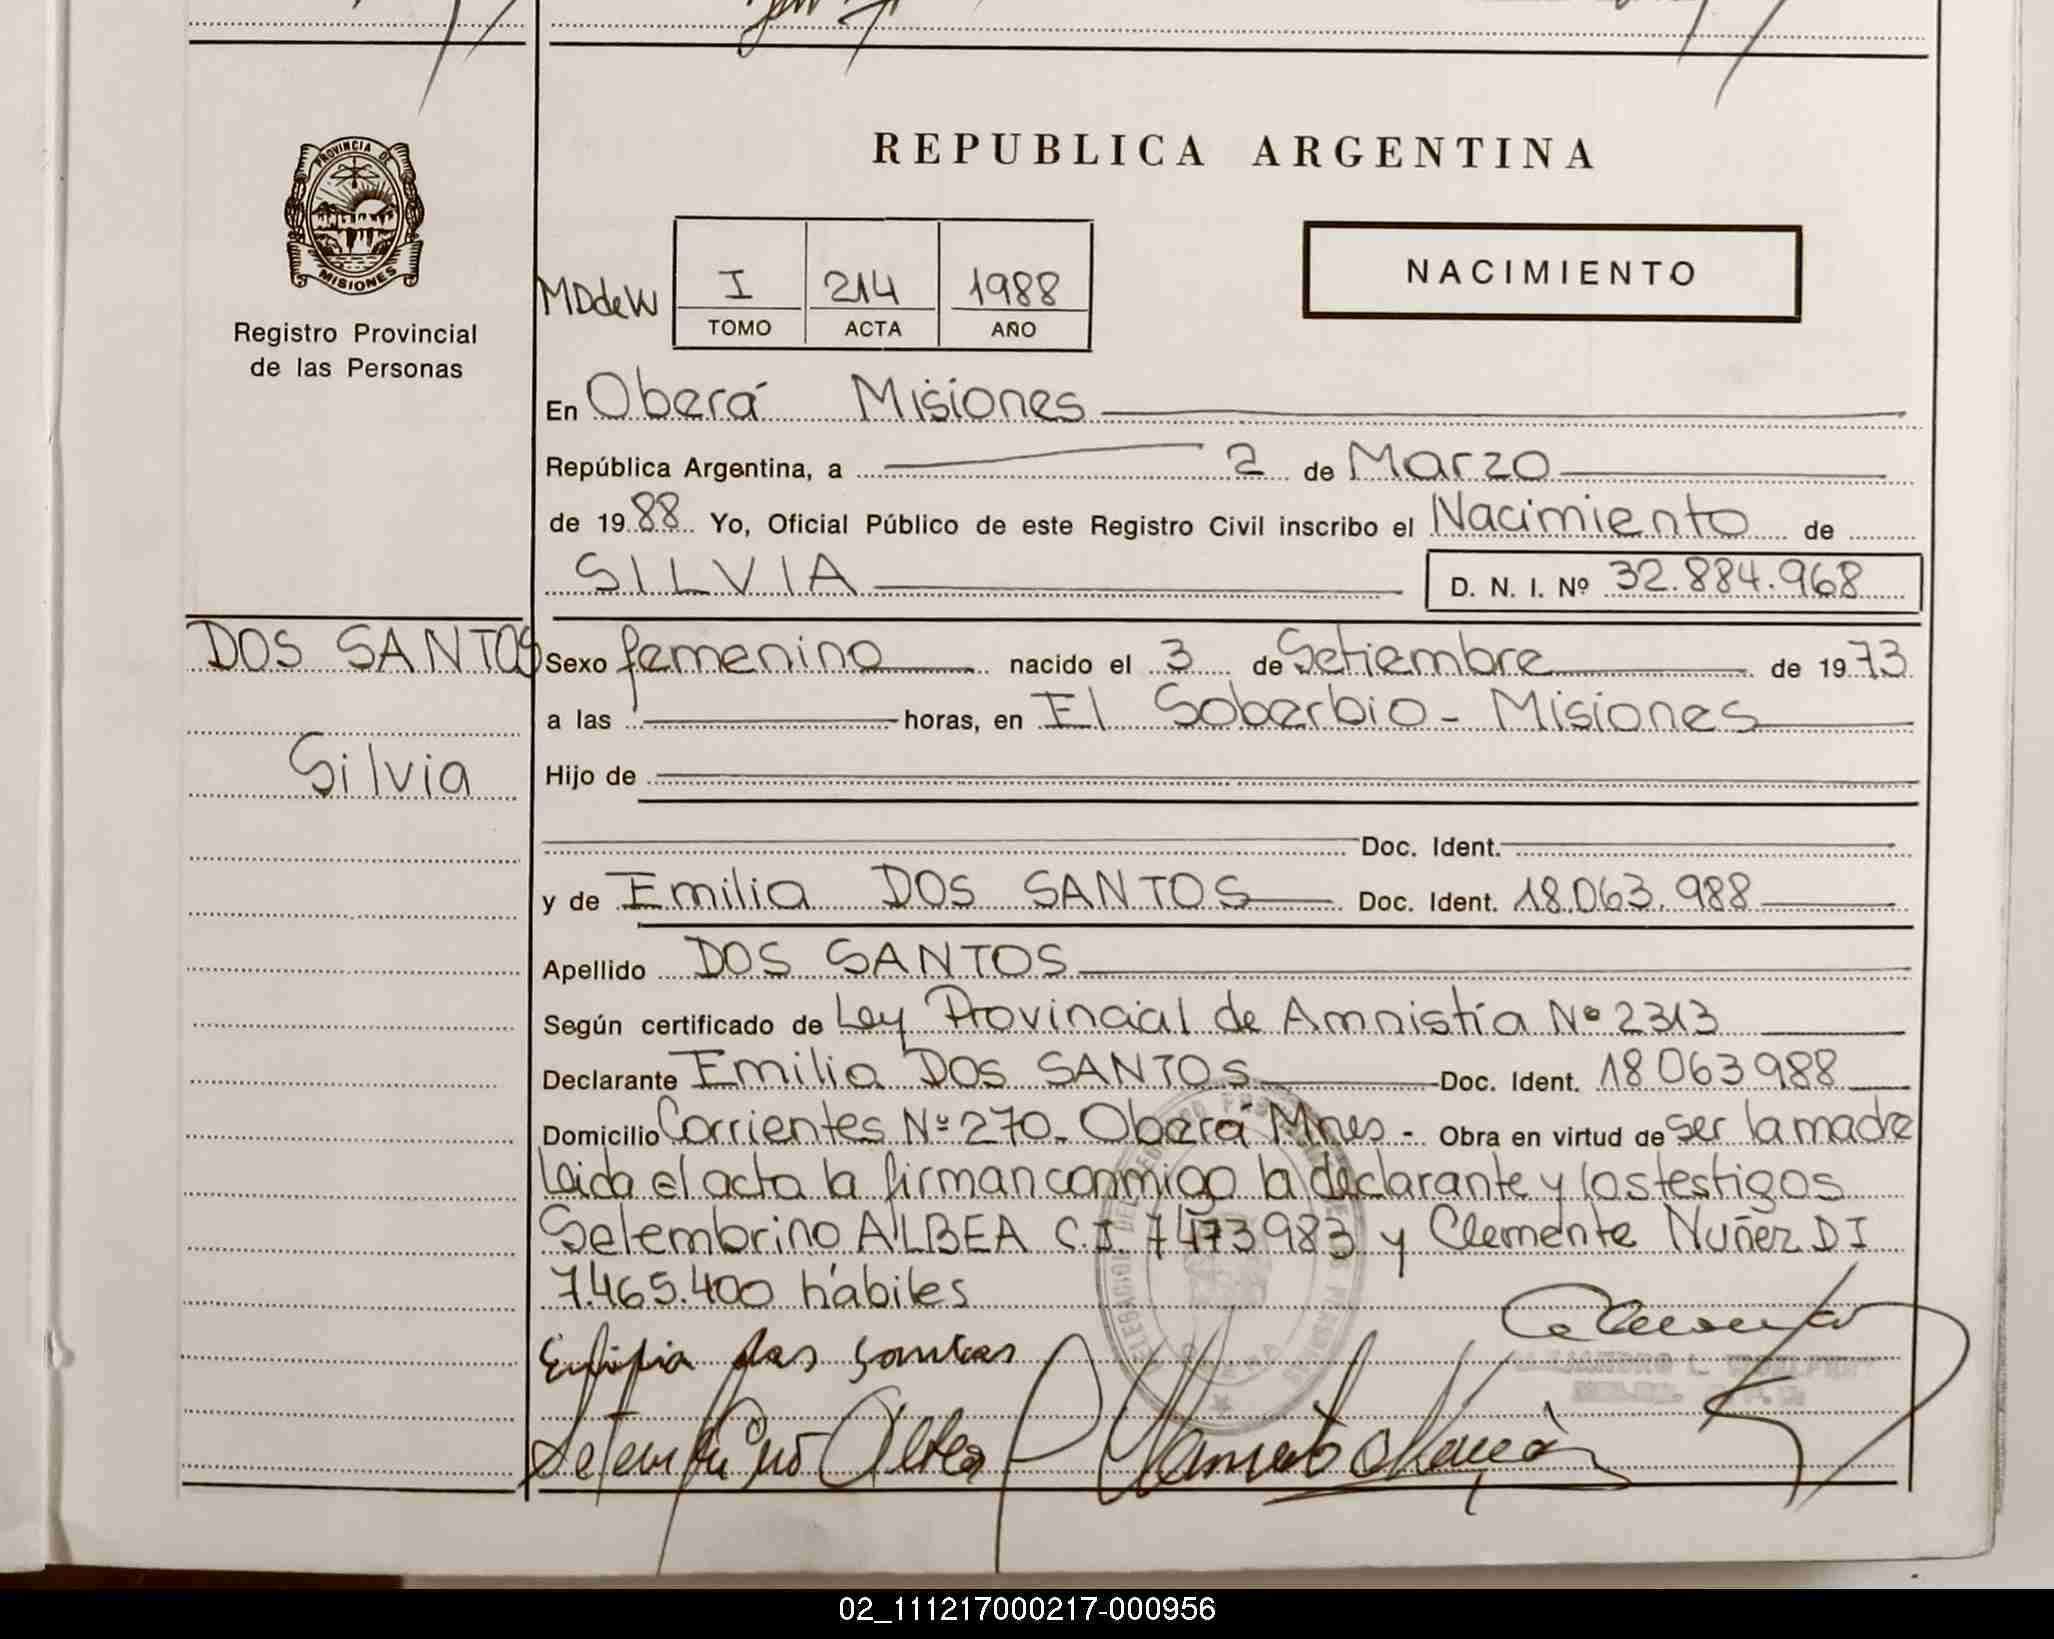 REPUBLICA ARGENTINA
PROVINCIA DE
MISIONES
Registro Provincial
de las Personas
MDdeW
I 214 1988
TOMO ACTA AÑO
NACIMIENTO
En Oberá Misiones
República Argentina, a 2 de Marzo
de 1988 Yo, Oficial Público de este Registro Civil inscribo el Nacimiento de
SILVIA D. N. I. Nº 32.884.968
DOS SANTOS
Silvia
Sexo femenino nacido el 3 de Setiembre de 1973
a las horas, en El Soberbio - Misiones
Hijo de
Doc. Ident.
y de Emilia DOS SANTOS Doc. Ident. 18.063.988
Apellido DOS SANTOS
Según certificado de Ley Provincial de Amnistía Nº 2313
Declarante Emilia DOS SANTOS Doc. Ident. 18 063 988
Domicilio Corrientes Nº 270 - Oberá Mnes - Obra en virtud de ser la madre
Leida el acta la firman conmigo la declarante y los testigos
Setembrino ALBEA C.I. 7473983 y Clemente Nuñez DI
7.465.400 hábiles
Emilia dos santos
02_111217000217-000956